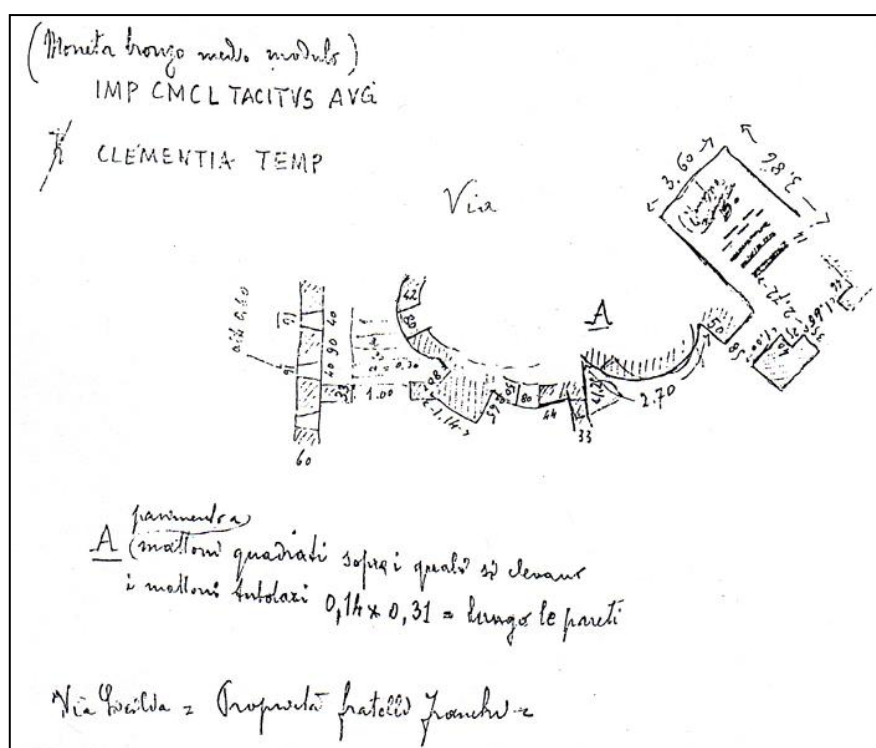 (Moneta bronzo medio modulo)
IMP CMCL TACITVS AVG
CLEMENTIA TEMP
Via
3.60
3.86
A
42
80
40
90
40
1.00
60
1.14
65
50
80
44
33
2.70
50
58
2,72
1.66
1.00
A pavimento a
(mattoni quadrati sopra i quali si elevano
i mattoni tubolari 0,14 x 0,31 = lungo le pareti
Via = Proprietà fratelli Franchi =